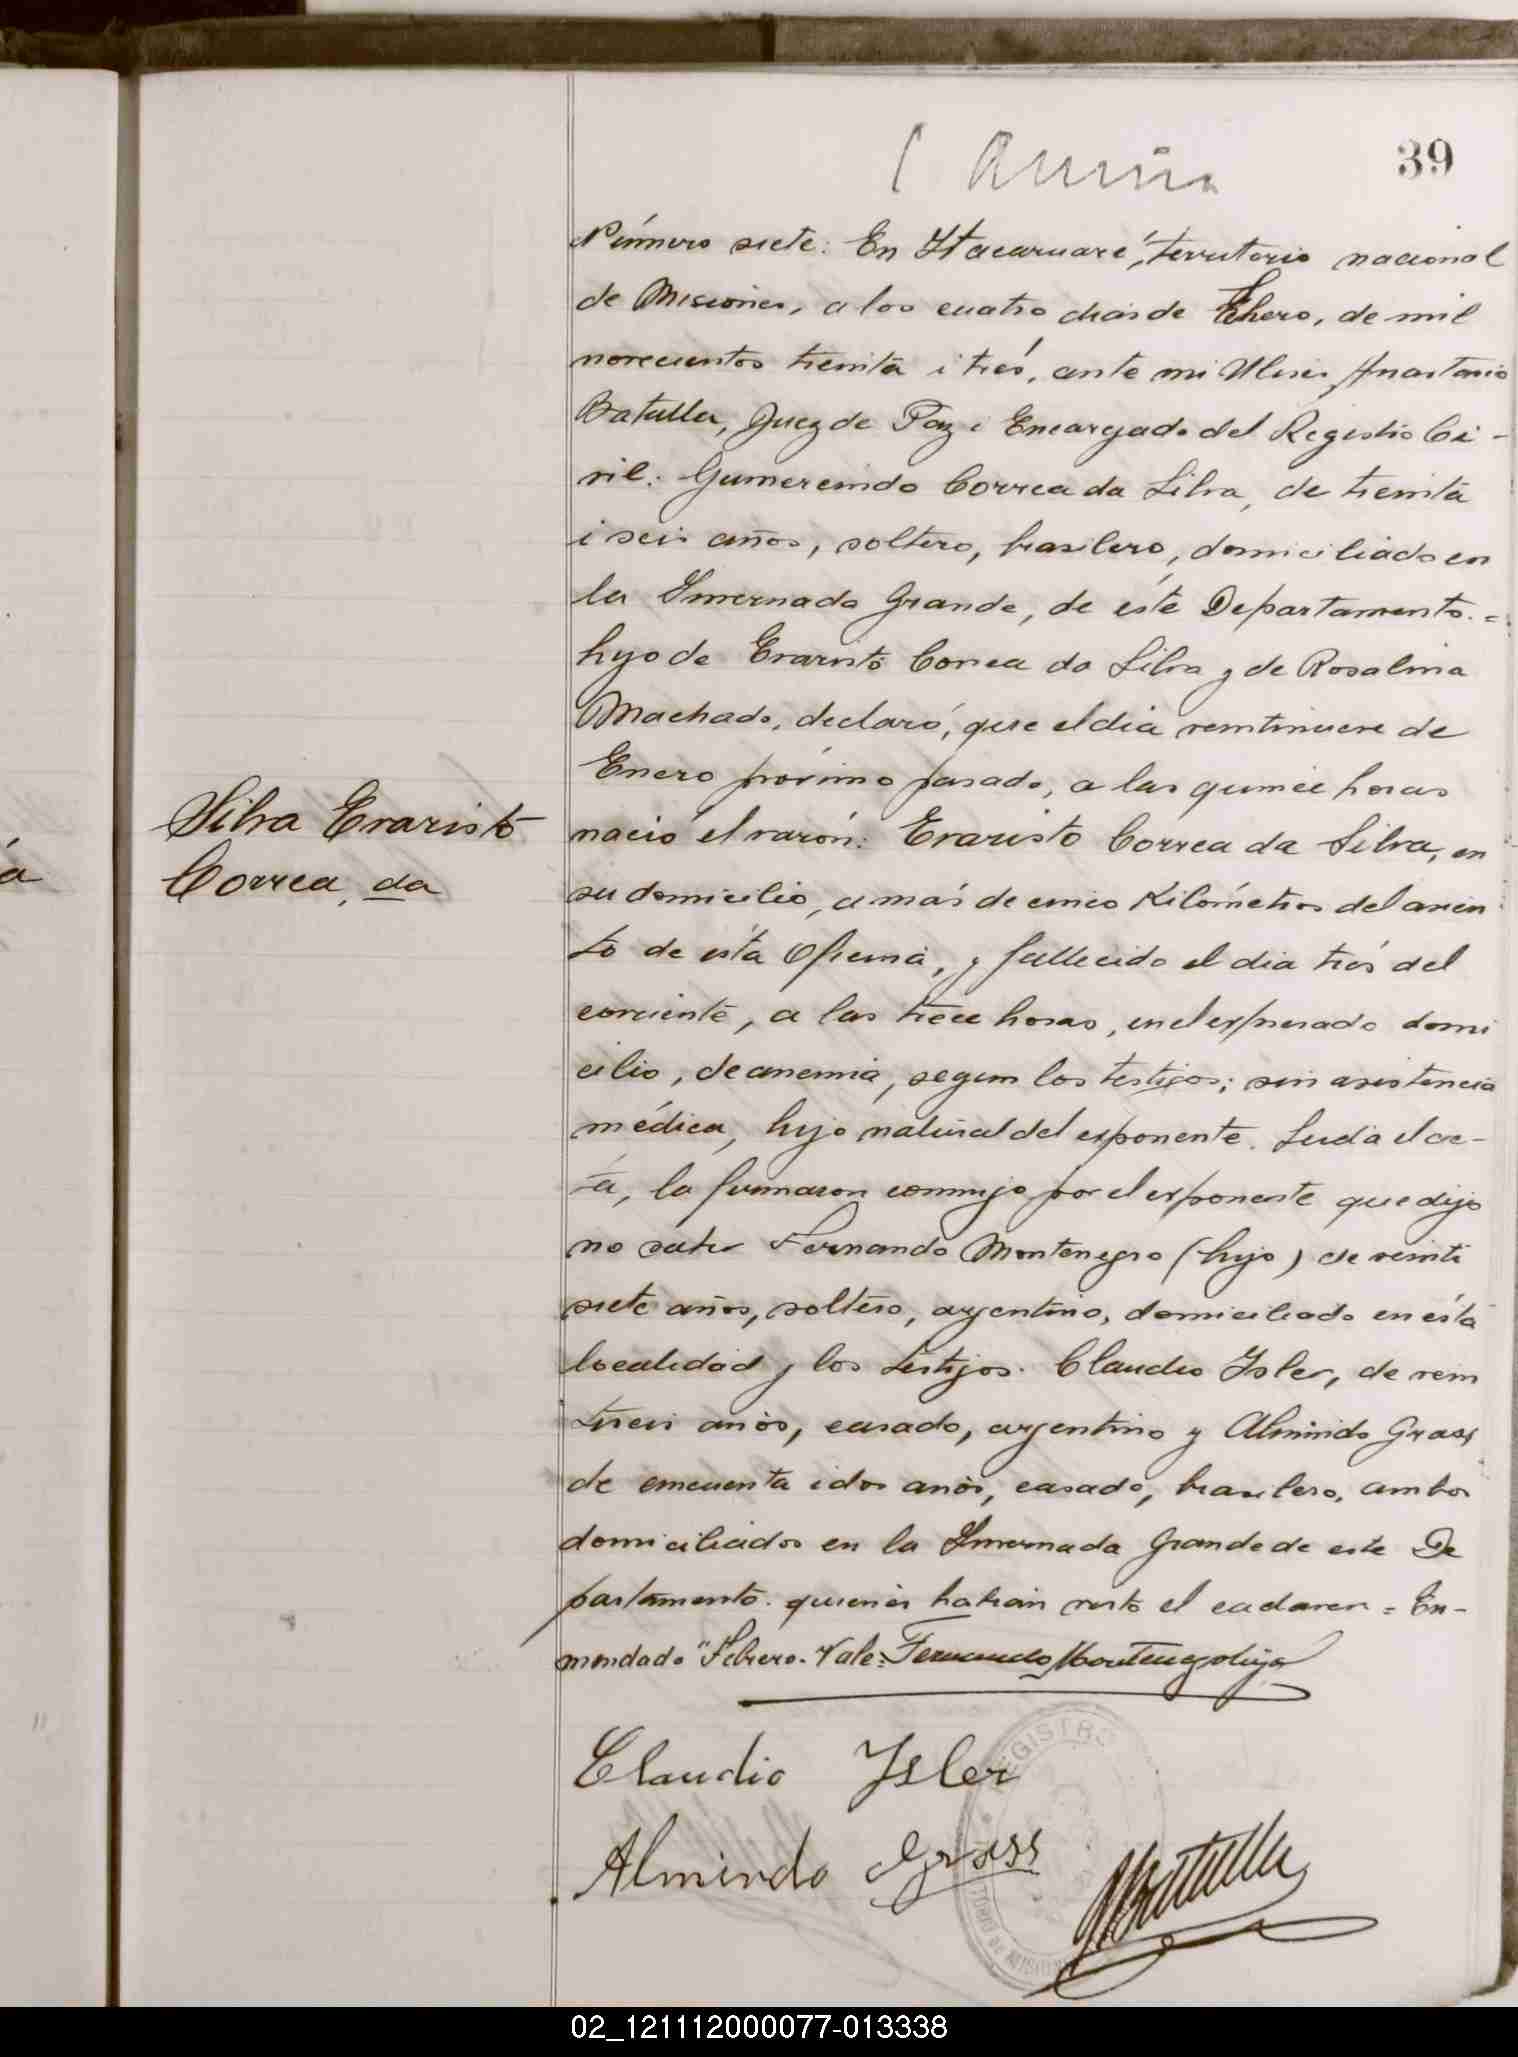 39
Número siete: En Itacaruaré, territorio nacional
de Misiones, a los cuatro dias de Febrero, de mil
novecientos treinta i trés, ante mi Ulises Anastacio
Batalla, Juez de Paz i Encargado del Registro Ci-
vil: Gumercindo Correa da Silva, de treinta
i seis años, soltero, brasilero, domiciliado en
la Invernada Grande, de éste Departamento.=
hijo de Evaristo Correa da Silva y de Rosalina
Machado, declaró, que el dia veintinueve de
Enero próximo pasado, a las quince horas
nació el varón: Evaristo Correa da Silva, en
su domicilio, a más de cinco Kilómetros del asien
to de ésta Oficina, y fallecido el dia trés del
corriente, a las trece horas, en el expresado domi
cilio, de anemia, segun los testigos; sin asistencia
médica, hijo natural del exponente. Leida el ac-
ta, la firmaron conmigo por el exponente que dijo
no saber Fernando Montenegro (hijo) de veinti
siete años, soltero, argentino, domiciliado en ésta
localidad y los testigos. Claudio Isler, de vein
tiseis años, casado, argentino y Almindo Grass
de cincuenta i dos años, casado, brasilero, ambos
domiciliados en la Invernada Grande de este De
partamento. quienes habian visto el cadaver = En-
mendado "Febrero. Vale: Fernando Montenegro hijo
Silva Evaristo
Correa, da
Claudio Isler
Almindo Grass
Batalla
REGISTRO
02_121112000077-013338